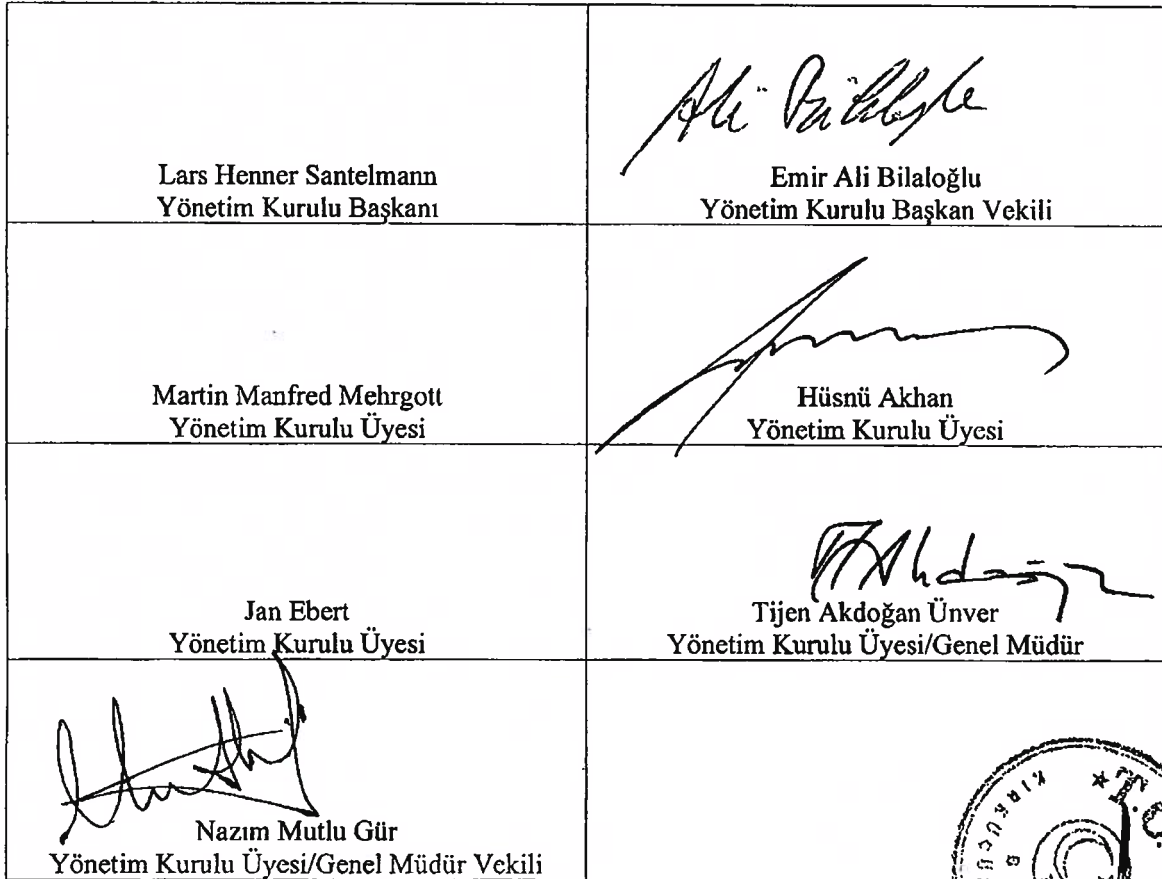 Lars Henner Santelmann
Yönetim Kurulu Başkanı
Ali
Emir Ali Bilaloğlu
Yönetim Kurulu Başkan Vekili
Martin Manfred Mehrgott
Yönetim Kurulu Üyesi
Hüsnü Akhan
Yönetim Kurulu Üyesi
Jan Ebert
Yönetim Kurulu Üyesi
Tijen Akdoğan Ünver
Yönetim Kurulu Üyesi/Genel Müdür
Nazım Mutlu Gür
Yönetim Kurulu Üyesi/Genel Müdür Vekili
T.C.